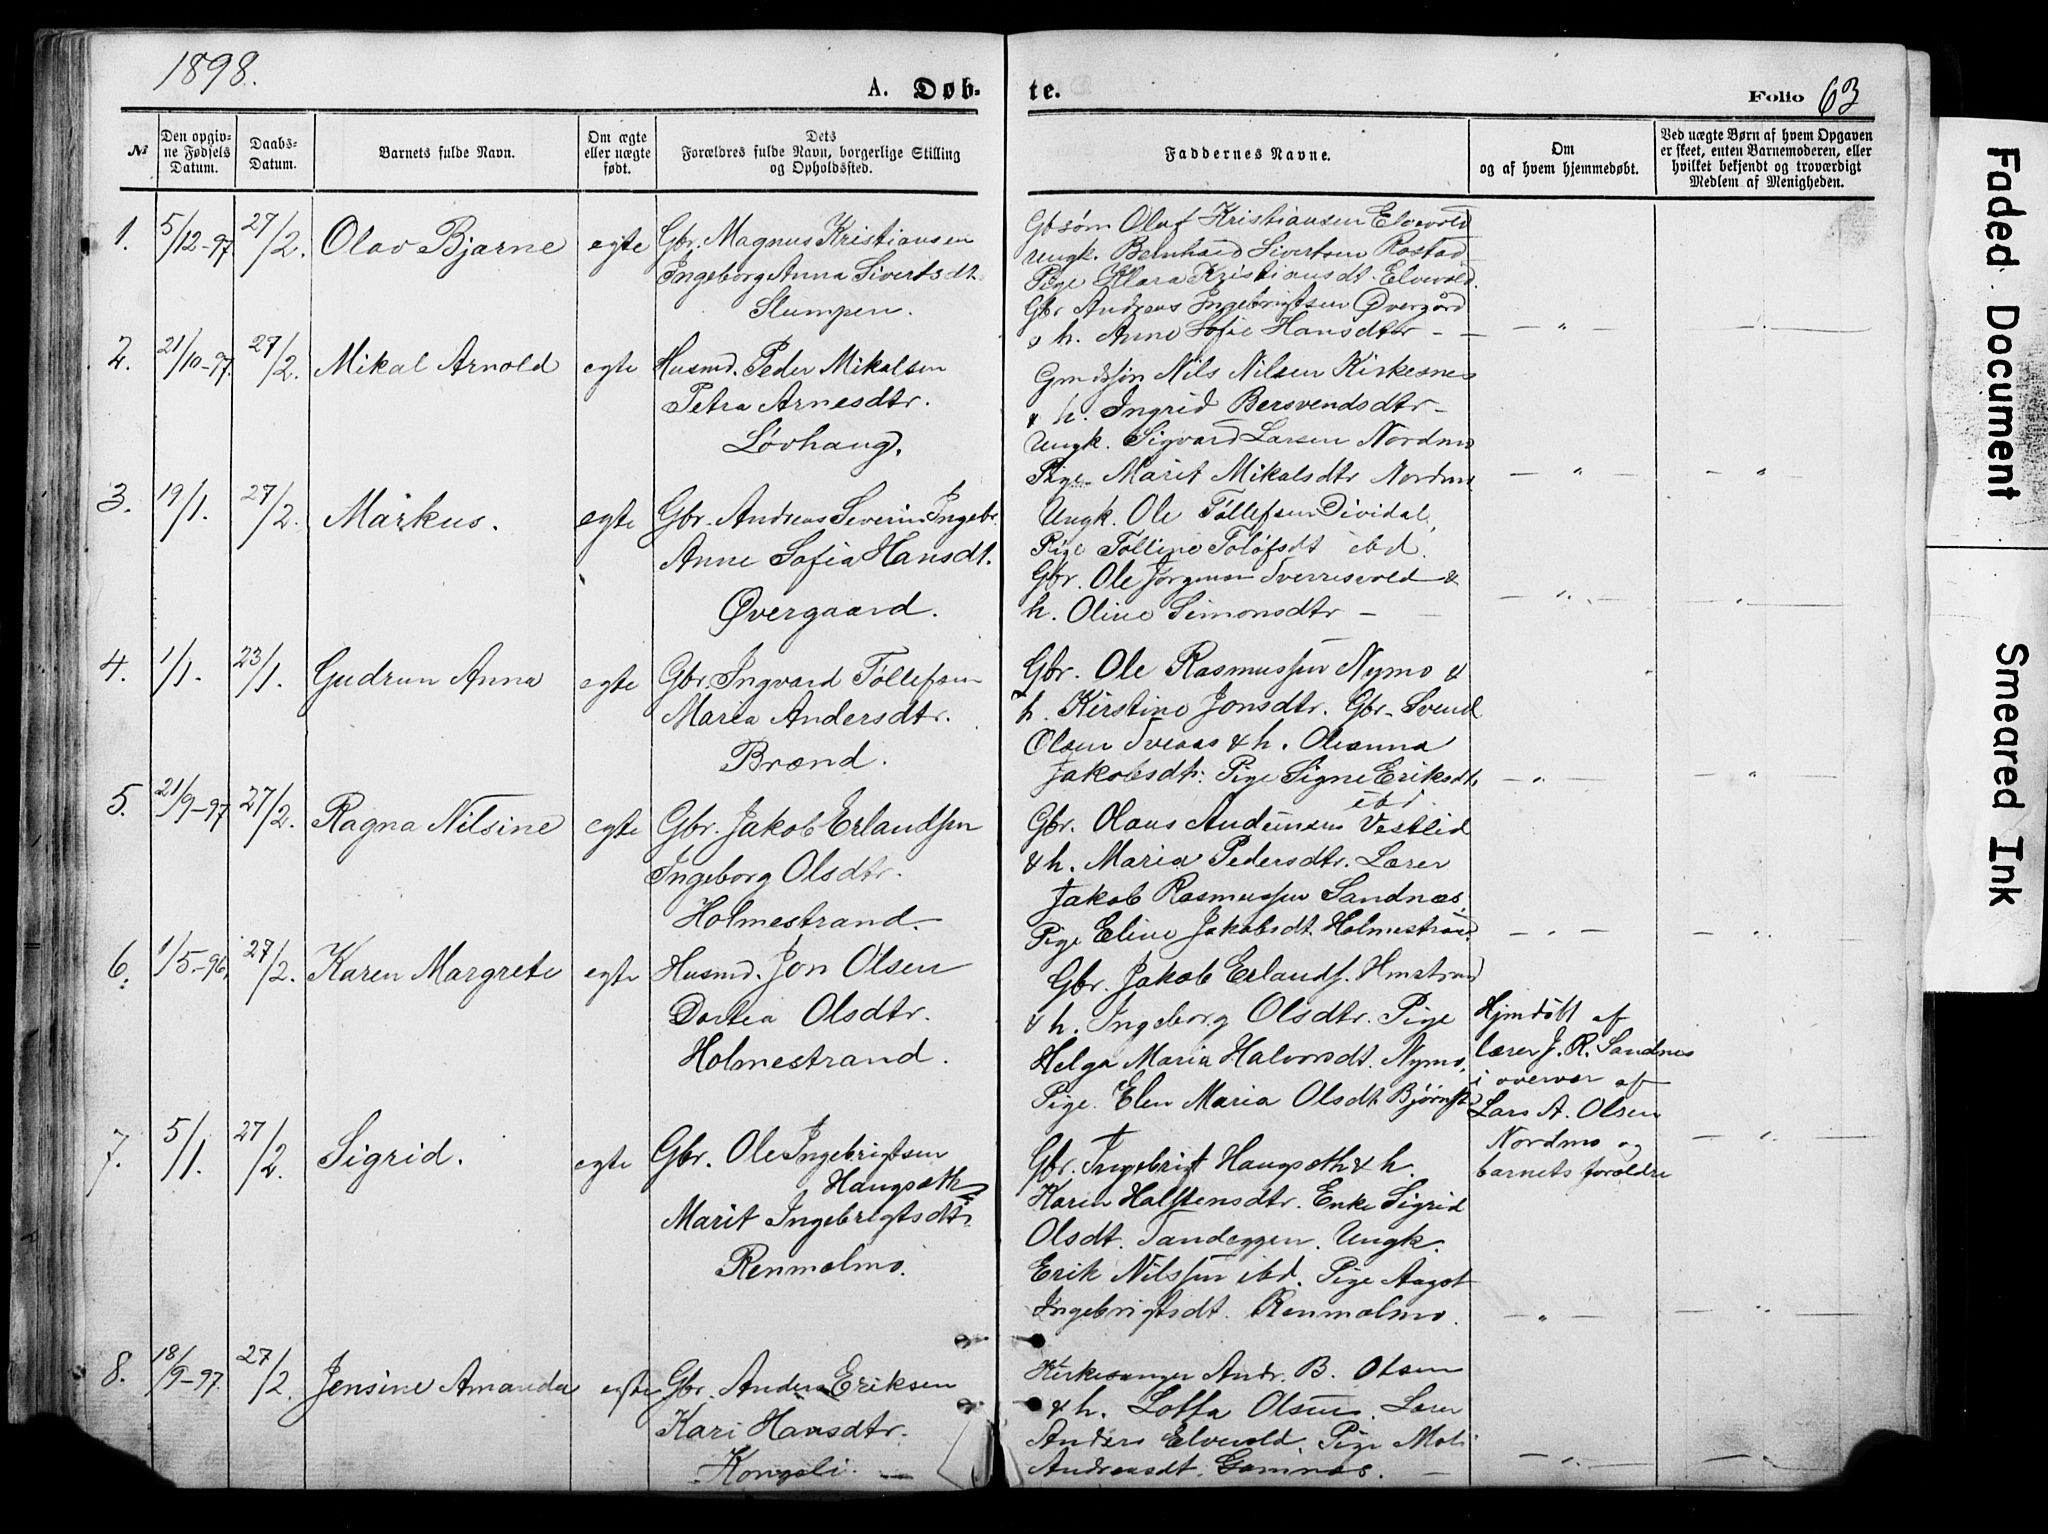 1898.
A. Døb-
te.
Folio 63
№
Den opgiv-
ne Fødsels
Datum.
Daabs-
Datum.
Barnets fulde Navn.
Om ægte
eller uægte
født.
Dets
Forældres fulde Navn, borgerlige Stilling
og Opholdssted.
Faddernes Navne.
Om
og af hvem hjemmedøbt.
Ved uægte Børn af hvem Opgaven
er skeet, enten Barnemoderen, eller
hvilket bekjendt og troværdigt
Medlem af Menigheden.
1. 5/12-97 27/2. Olav Bjarne egte Gbr. Magnus Kristiansen
Ingeborg Anna Sivertsdt.
Slumpen.
Gbsøn Olaf Kristiansen Elvevold
Ungk. Bernhard Sivertsen Rostad
Pige Klara Kristiansdt. Elvevold.
Gbr Andreas Ingebrigtsen Øvergård
& h. Anne Sofie Hansdtr –
— " —
2. 21/10-97. 27/2. Mikal Arnold egte Husmd. Peder Mikalsen
Petra Arnesdtr.
Løvhaug.
Nils Nilsen Kirkesnes
& h. Ingrid Bersvendsdtr –
Ungk. Sigvard Larsen Nordmo
Pige Marit Mikalsdtr Nordmo
— " — — "
3. 19/1. 27/2. Markus. egte Gbr. Andreas Severin Ingebr.
Anne Sofia Hansdt.
Øvergaard.
Ungk. Ole Tøllefsen Dividal,
Pige Tolline Tolofsdt ibd.
Gbr. Ole Jørgensen Sverresvold &
h. Oline Simonsdtr —
— " — — " —
4. 1/1. 23/1. Gudrun Anna egte Gbr. Ingvard Tøllefsen
Maria Andersdtr.
Brænd.
Gbr. Ole Rasmussen Nymo &
h. Kirstine Jonsdtr. Gbr. Svend
Olsen Sveaas & h. Oleanna
Jakobsdt. Pige Signe Eriksdt.
ibd.
— " — "
5. 21/9-97 27/2. Ragna Nilsine egte Gbr. Jakob Erlandsen
Ingeborg Olsdtr.
Holmestrand.
Gbr. Olaus Andersen Vestlid
& h. Maria Pedersdtr. Lærer
Jakob Rasmussen Sandnæs.
Pige Eline Jakobsdt. Holmestrand
— " —
6. 1/5-96. 27/2. Karen Margrete egte Husmd. Jon Olsen
Dortea Olsdtr.
Holmestrand.
Gbr. Jakob Erlands. Hmstrand
& h. Ingeborg Olsdtr. Pige
Helga Maria Halvorsdt. Nymo.
Pige. Elen Maria Olsdt. Bjørnst.
Hjmdøbt af
lærer J. R. Sandnes
i overvær af
Lars A. Olsen
Nordmo og
barnets forældre
7. 5/1. 27/2. Sigrid. egte Gbr. Ole Ingebrigtsen
Haugsæth
Marit Ingebrigtsdt.
Renmælmo.
Gbr. Ingebrigt Haugsæth & h.
Karen Halstensdtr. Enke Sigrid
Olsdt. Tandeggen. Ungk.
Erik Nilssen ibd. Pige Aagot
Ingebrigtsdt. Renmælmo.
— " — — " —
8. 18/9-97. 27/2. Jensine Amanda egte Gbr. Anders Eriksen
Kari Hansdtr.
Kongsli.
Kirkesanger Andr. B. Olsen
& h. Lotta Olsen. Lærer
Anders Elvevold. Pige
Andreasdt. Gamnæs.
— " —
Faded Document
Smeared Ink